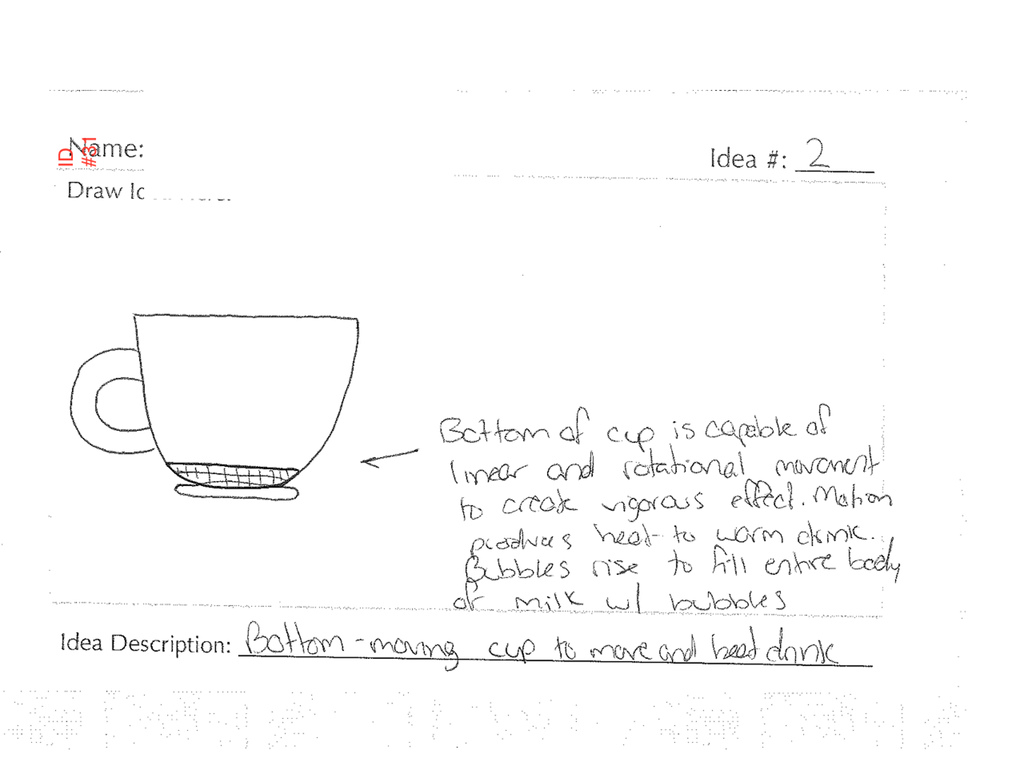 Name:
ID
#31
Idea #: 2
Bottom of cup is capable of
linear and rotational movement
to create vigorous effect. Motion
produces heat to warm drink.
Bubbles rise to fill entire body
of milk w/ bubbles
Idea Description: Bottom-moving cup to move and heat drink